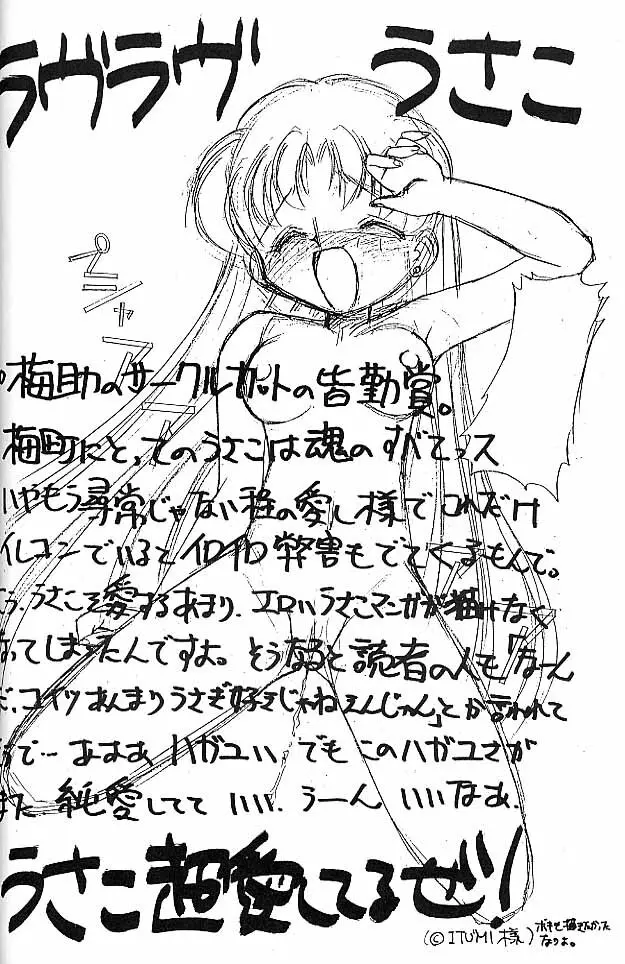 ラヴラヴ うさこ
ペシャ
梅助のサークルカットの皆勤賞。
梅町にとってのうさこは魂のすべてっス
いやもう尋常じゃない程の愛し様でこれだけ
イレコンでいるとイロイロ弊害もでてくるもんで。
うさこを愛するあまり、エロいうさこマンガが描けなく
なってしまったんですよ。そうなると読者の人も「なーん
だ、コイツあんまりうさぎ好きじゃねえんじゃん」とか言われて
で…ああああ ハガユい でもこのハガユさが
また 純愛してて いい。うーん いいなあ。
うさこ超愛してるぜ!
(©ITUMI様)